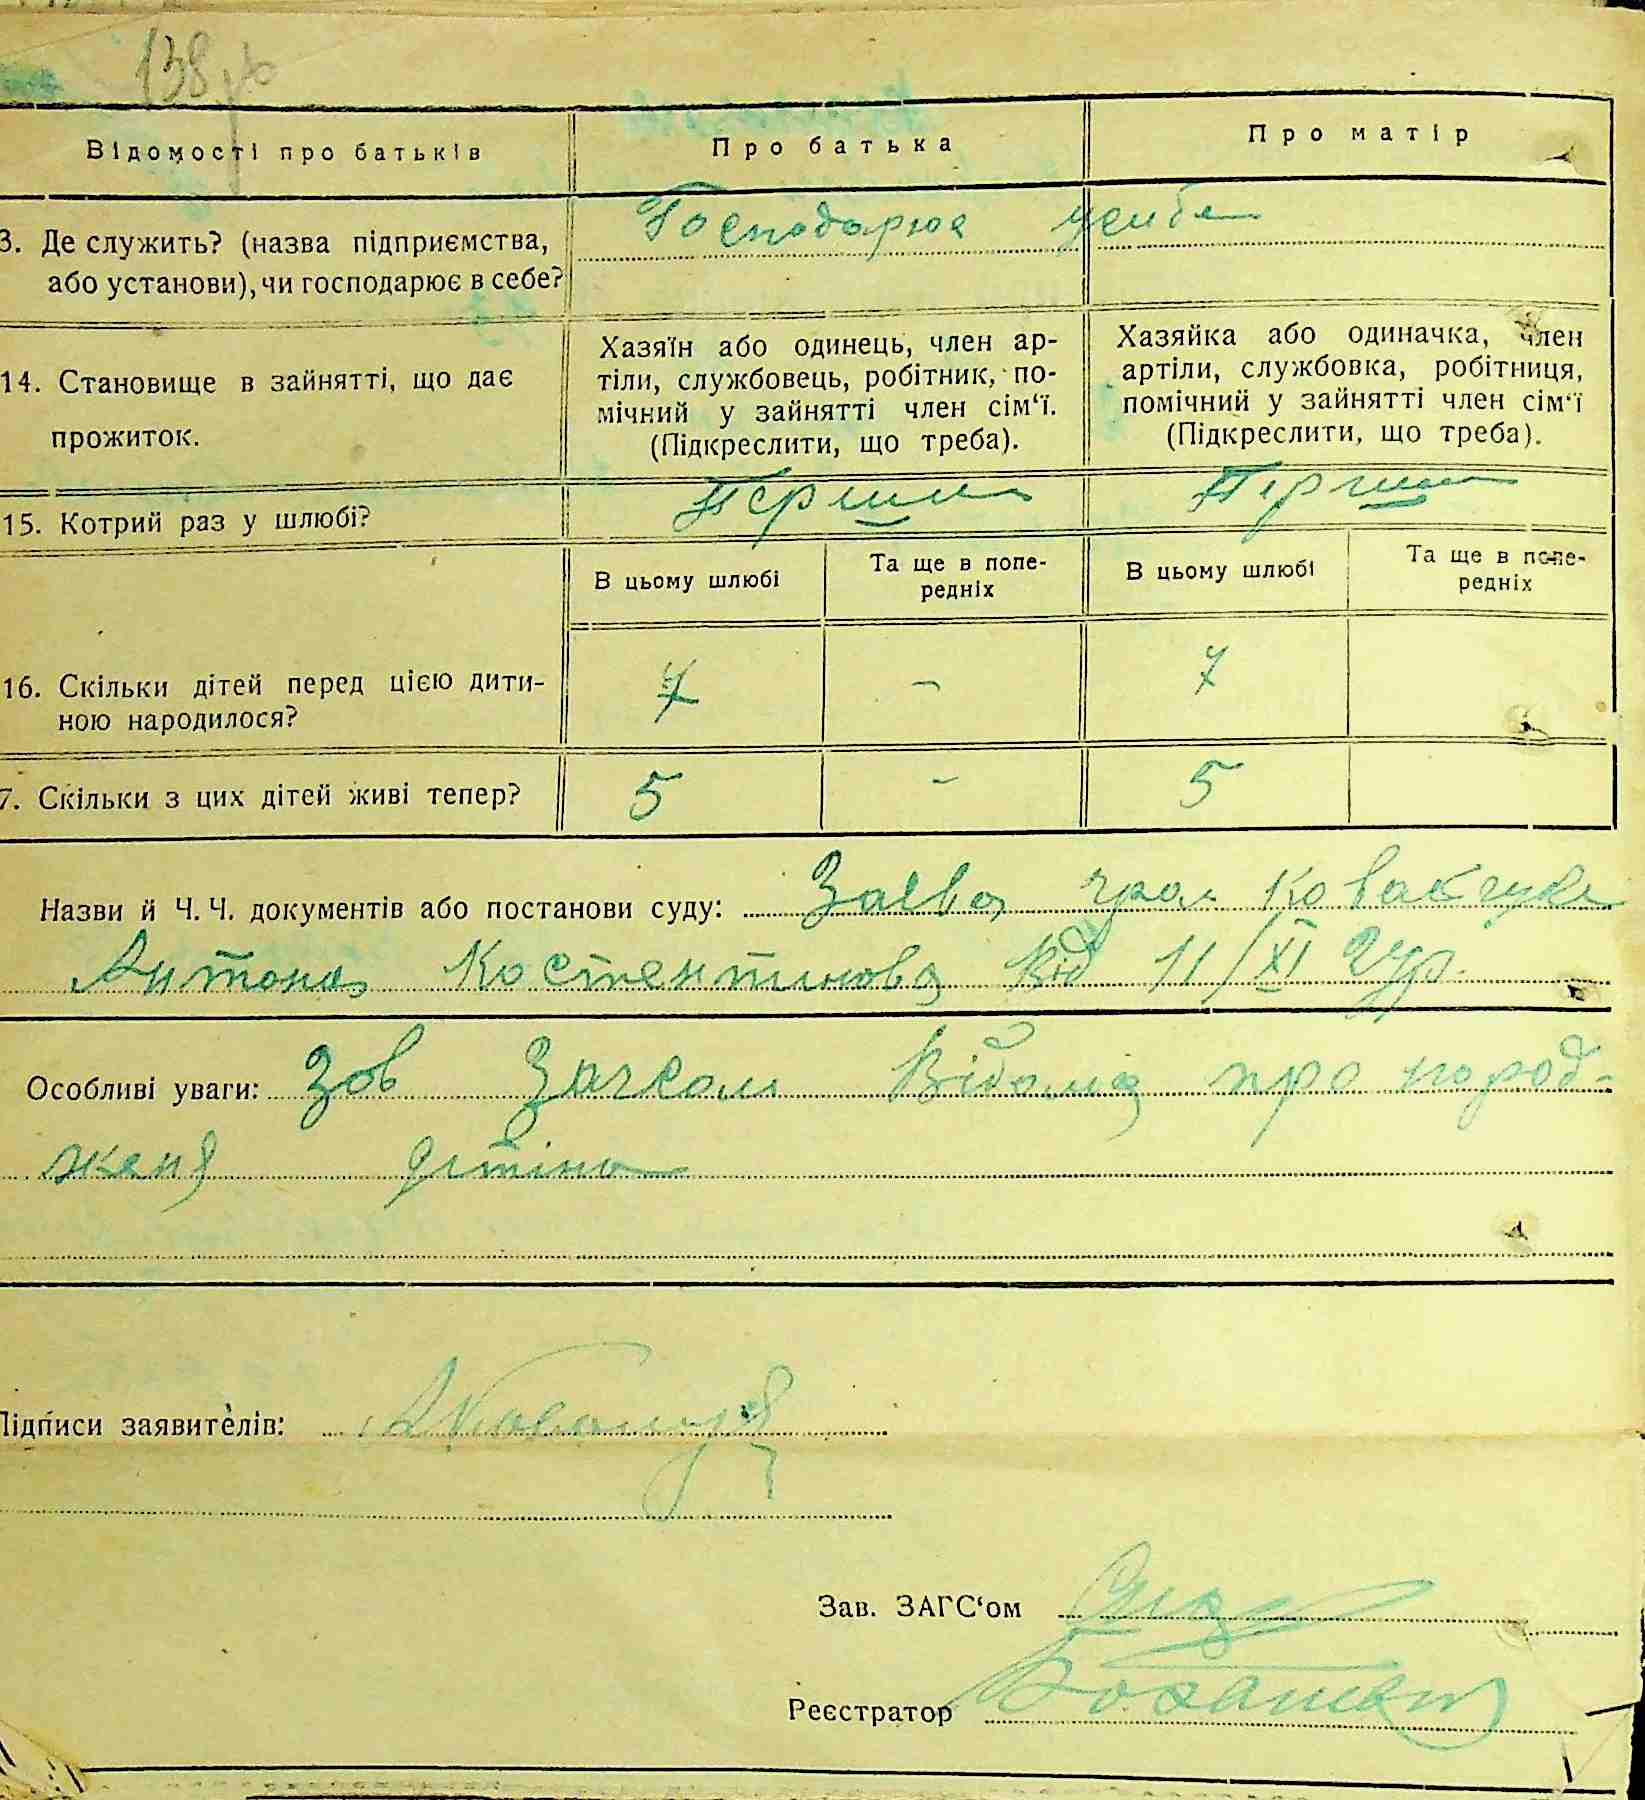 138
Відомості про батьків
Про батька
Про матір
3. Де служить? (назва підприємства,
або установи), чи господарює в себе?
Господарює усибе
14. Становище в зайнятті, що дає
прожиток.
Хазяїн або одинець, член ар-
тіли, службовець, робітник, по-
мічний у зайнятті член сім‘ї.
(Підкреслити, що треба).
Хазяйка або одиначка, член
артіли, службовка, робітниця,
помічний у зайнятті член сім‘ї
(Підкреслити, що треба).
15. Котрий раз у шлюбі?
Перший
Перший
В цьому шлюбі
Та ще в попе-
редніх
В цьому шлюбі
Та ще в попе-
редніх
16. Скільки дітей перед цією дити-
ною народилося?
7 - 7
7. Скільки з цих дітей живі тепер?
5 - 5
Назви й Ч. Ч. документів або постанови суду: Заєва гром Ковальчука
Антона Костентинова від 11/XI 24р.
Особливі уваги: про народ-
женя дітіни
Підписи заявителів:
Зав. ЗАГС‘ом
Реєстратор